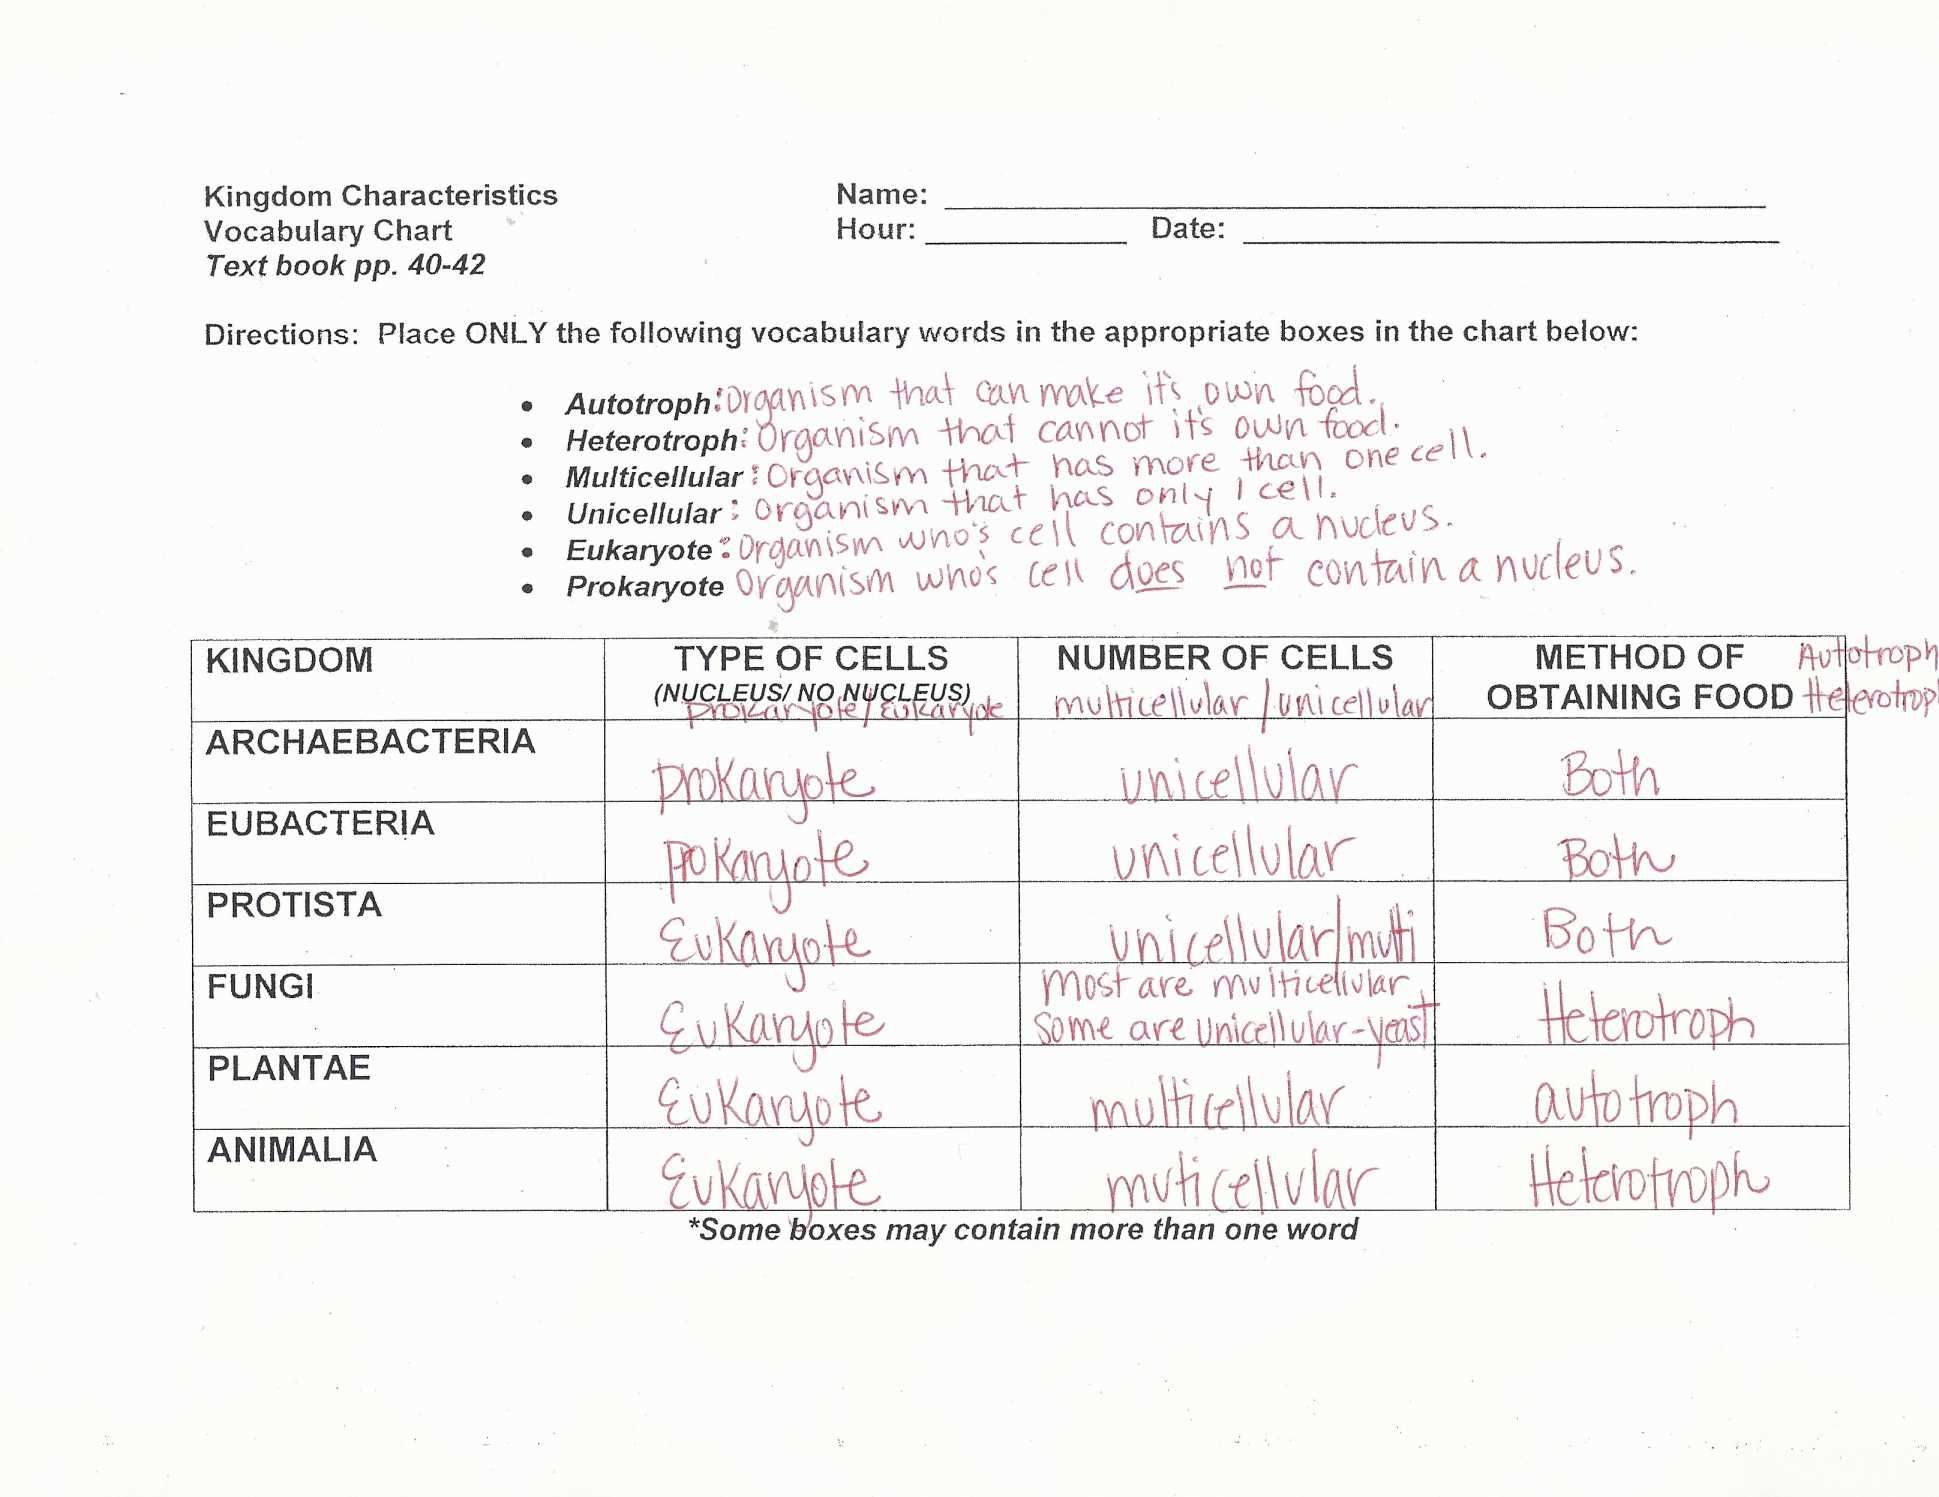 Kingdom Characteristics
Name:
Vocabulary Chart
Hour: Date:
Text book pp. 40-42
Directions: Place ONLY the following vocabulary words in the appropriate boxes in the chart below:
• Autotroph: Organism that can make it's own food.
• Heterotroph: Organism that cannot it's own food.
• Multicellular: Organism that has more than one cell.
• Unicellular: Organism that has only 1 cell.
• Eukaryote: Organism who's cell contains a nucleus.
• Prokaryote Organism who's cell does not contain a nucleus.
KINGDOM TYPE OF CELLS NUMBER OF CELLS METHOD OF Autotroph
(NUCLEUS/ NO NUCLEUS) OBTAINING FOOD Heterotrop
prokaryote/Eukaryote multicellular/unicellular
ARCHAEBACTERIA prokaryote unicellular Both
EUBACTERIA prokaryote unicellular Both
PROTISTA Eukaryote unicellular/multi Both
FUNGI Eukaryote most are multicellular Heterotroph
some are unicellular-yeast
PLANTAE Eukaryote multicellular autotroph
ANIMALIA Eukaryote muticellular Heterotroph
*Some boxes may contain more than one word